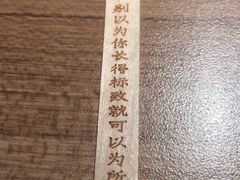 别以为你长得标致就可以为所